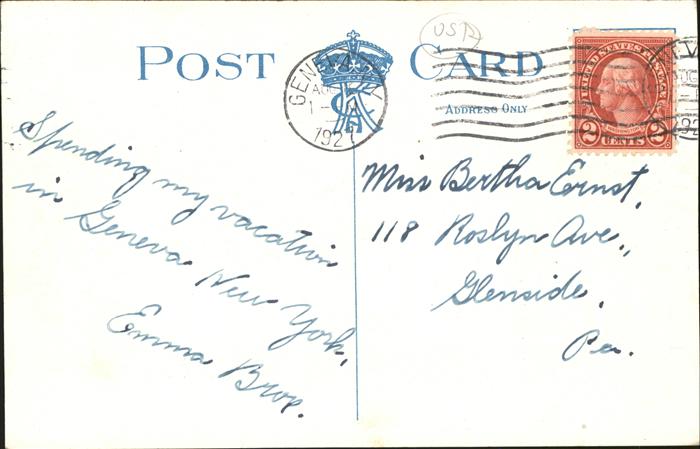 POST CARD
USA
GENEVA N.Y.
AUG
1927
ADDRESS ONLY
UNITED STATES POSTAGE
WASHINGTON
2 CENTS 2
Spending my vacation
in Geneva New York,
Emma
Miss Bertha Ernst,
118 Roslyn Ave.,
Glenside,
Pa.